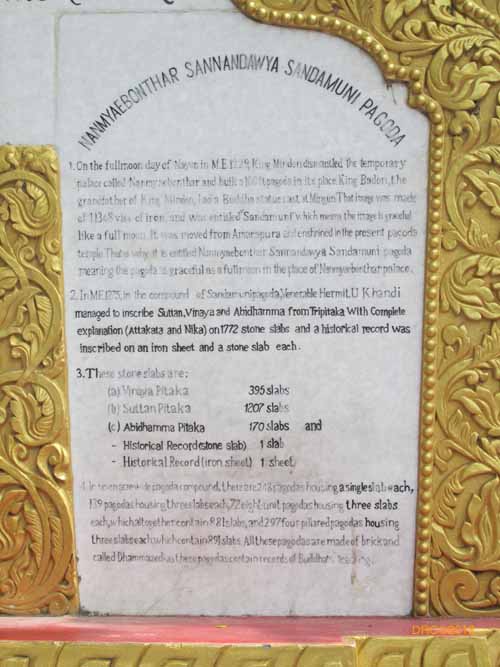 NANMYAEBONTHAR SANNANDAWYA SANDAMUNI PAGODA
1. On the fullmoon day of Nayon in M.E 1229, King Mindon dismantled the temporary
palace called Nanmyaebonthar and built a 100 ft pagoda in its place. King Badon, the
grandfather of King Mindon, had a Buddha statue cast at Mingun. That image was made
of 11348 viss of iron, and was entitled "Sandamuni" which means the image is graceful
like a full moon. It was moved from Amarapura and enshrined in the present pagoda
temple. That is why it is entitled Nanmyaebonthar Sannandawya Sandamuni pagoda
meaning the pagoda is graceful as a fullmoon in the place of Nanmyaebonthar palace.
2. In M.E 1275, in the compound of Sandamuni pagoda, Venerable Hermit. U Khandi
managed to inscribe Suttan, Vinaya and Abidhamma from Tripitaka With Complete
explanation (Attakata and Nika) on 1772 stone slabs and a historical record was
inscribed on an iron sheet and a stone slab each.
3. These stone slabs are:
(a) Vinaya Pitaka 395 slabs
(b) Suttan Pitaka 1207 slabs
(c) Abidhamma Pitaka 170 slabs and
- Historical Record (stone slab) 1 slab
- Historical Record (iron sheet) 1 sheet
4. In seven acre wide pagoda compound, there are 248 pagodas housing a single slab each,
139 pagodas housing three slabs each, 72 eight unit pagodas housing three slabs
each, which altogether contain 881 slabs, and 297 four pillared pagodas housing
three slabs each which contain 891 slabs. All these pagodas are made of brick and
called Dhammazedi as these pagodas contain records of Buddha's teaching.